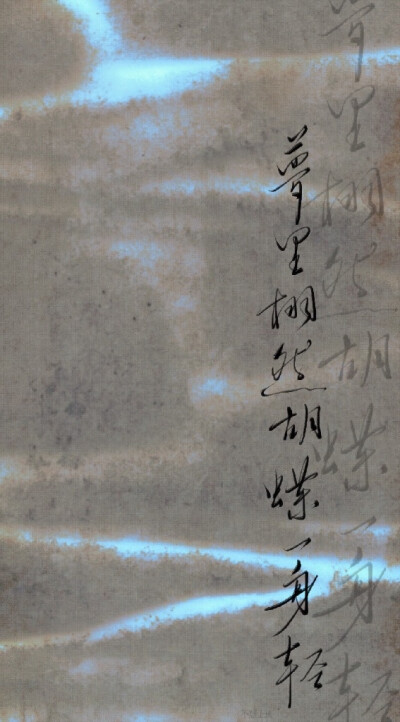 夢里栩然胡蝶一身轻
夢里栩然胡蝶一身轻